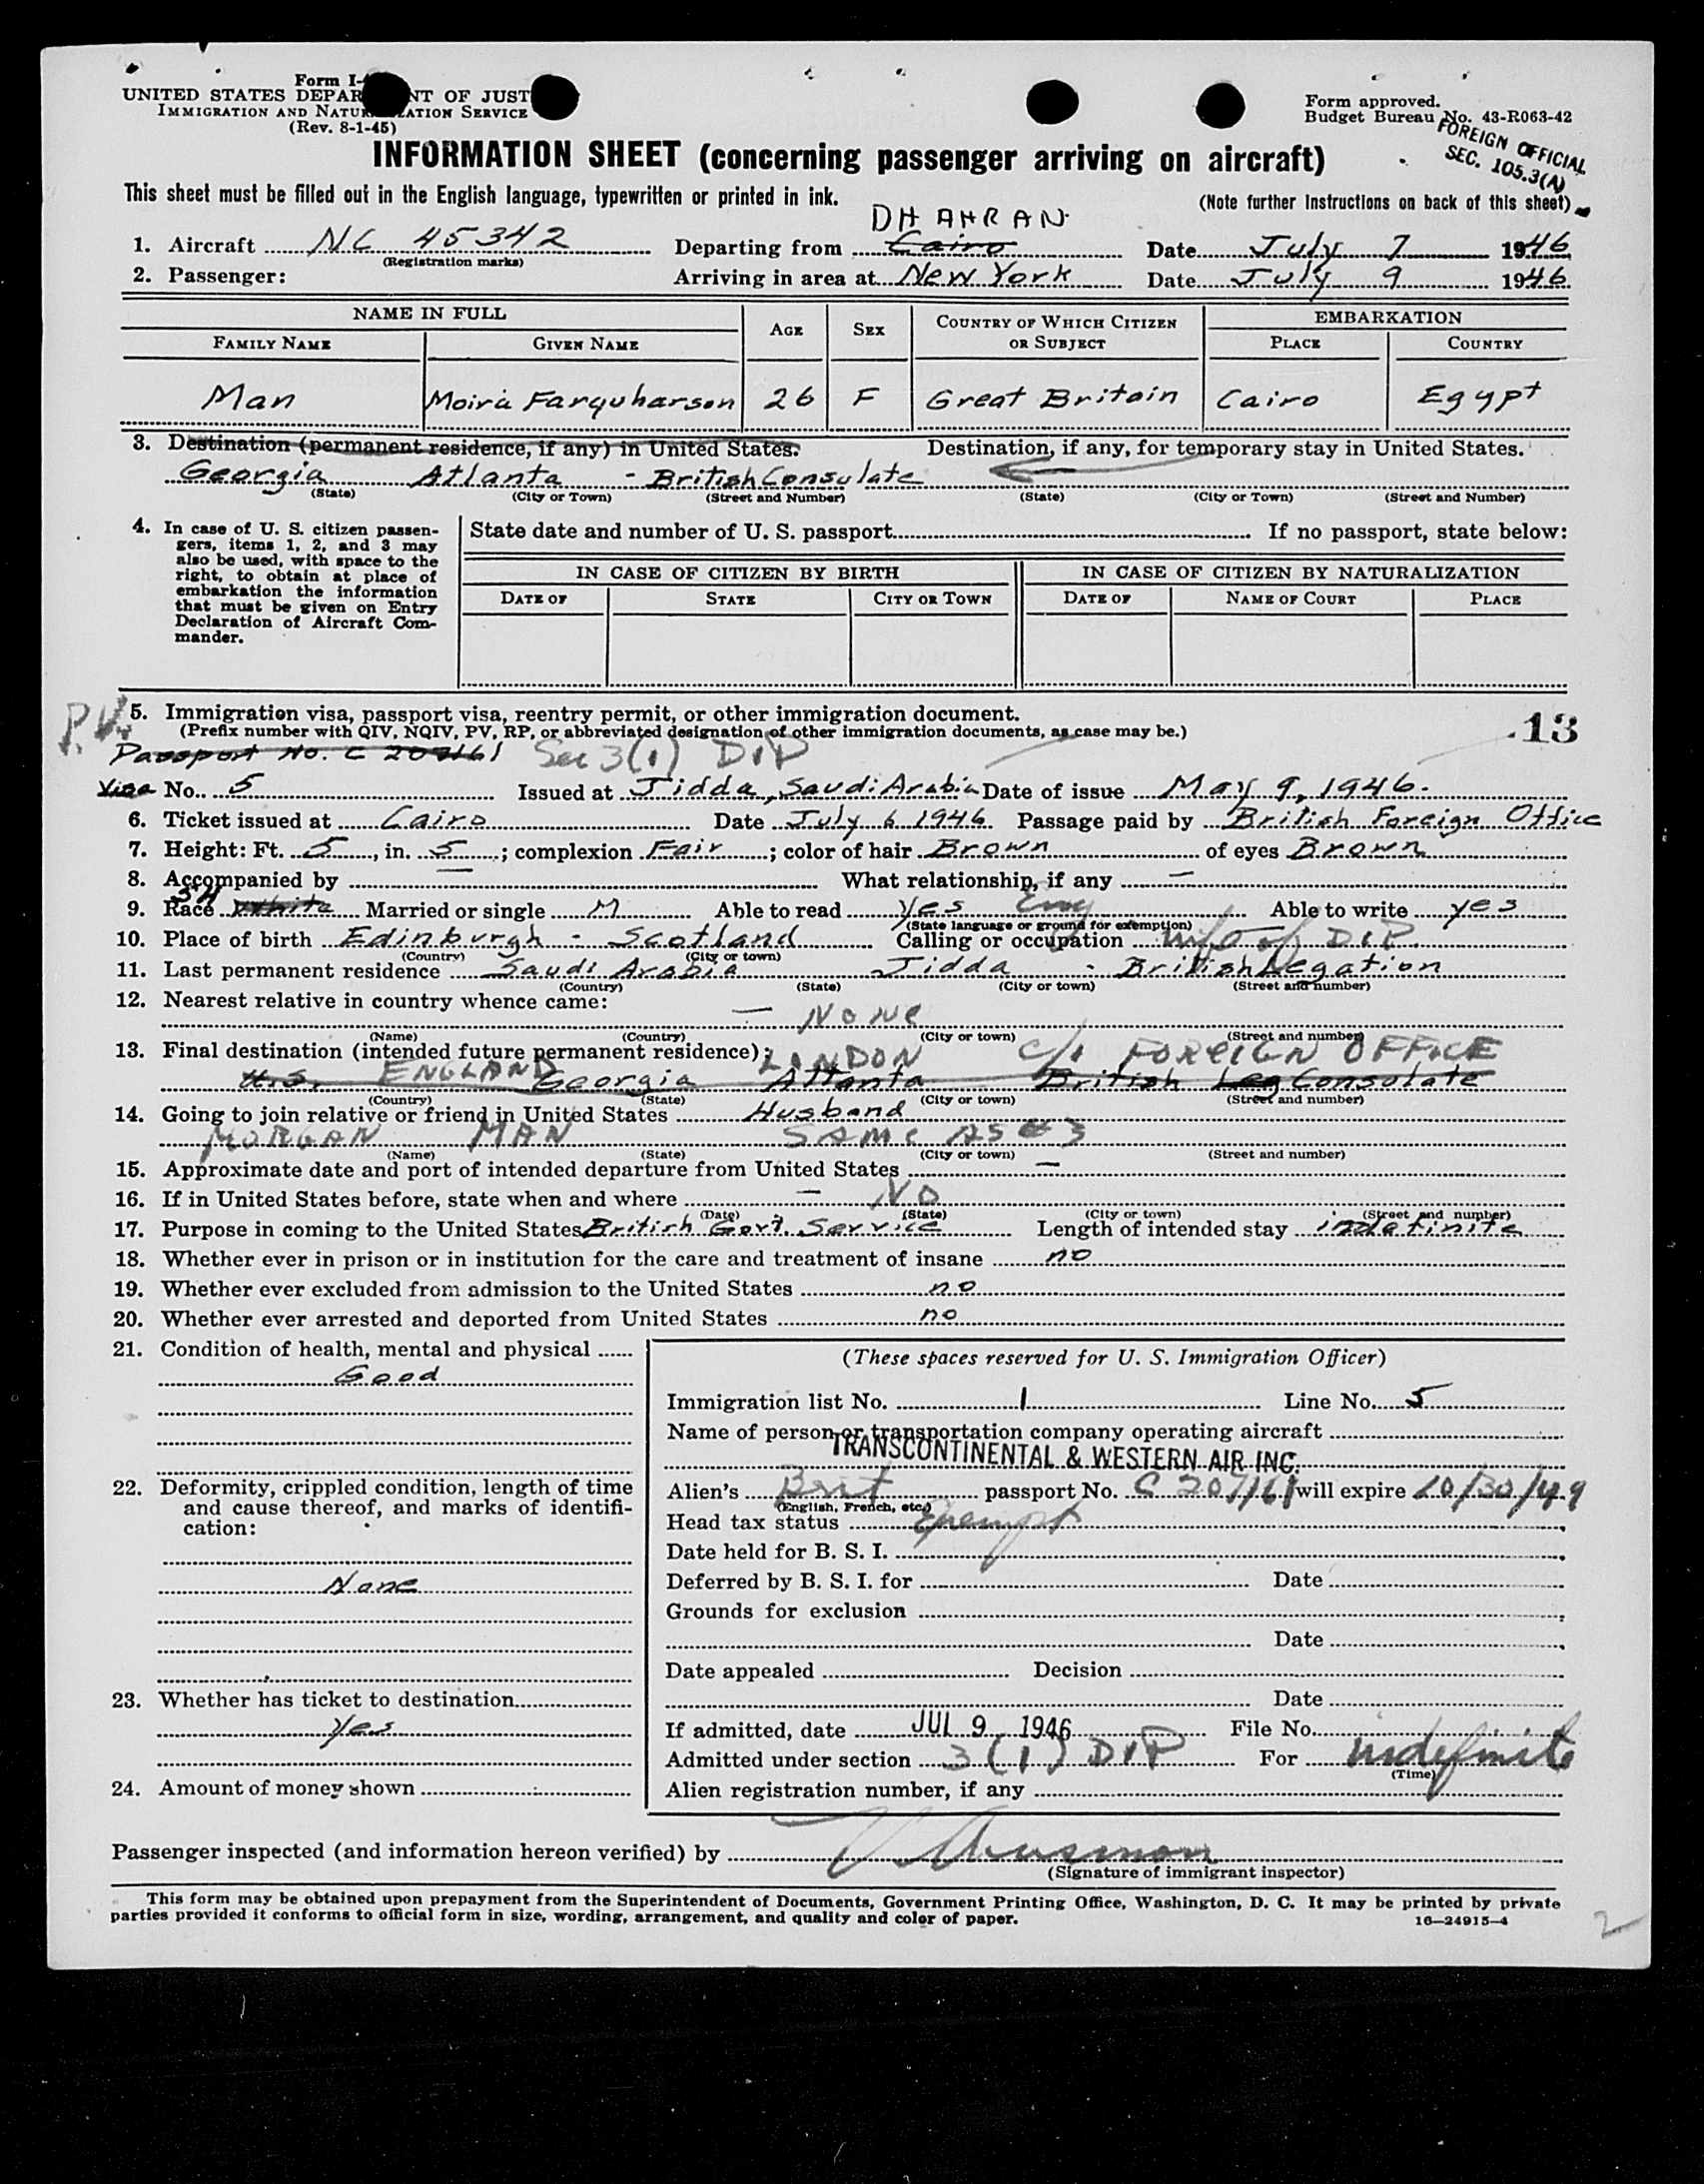 Form I-
UNITED STATES DEPAR NT OF JUST
IMMIGRATION AND NATUR ATION SERVICE
(Rev. 8-1-45)
Form approved.
Budget Bureau No. 43-R063-42
FOREIGN OFFICIAL
SEC. 105.3(A)
INFORMATION SHEET (concerning passenger arriving on aircraft)
This sheet must be filled out in the English language, typewritten or printed in ink.
(Note further instructions on back of this sheet)
DHAHRAN
1. Aircraft NC 45342 Departing from Cairo Date July 7 1946
(Registration marks)
2. Passenger: Arriving in area at New York Date July 9 1946
NAME IN FULL AGE SEX COUNTRY OF WHICH CITIZEN OR SUBJECT EMBARKATION
FAMILY NAME GIVEN NAME PLACE COUNTRY
Man Moira Farquharson 26 F Great Britain Cairo Egypt
3. Destination (permanent residence, if any) in United States. Destination, if any, for temporary stay in United States.
Georgia Atlanta - British Consulate
(State) (City or Town) (Street and Number) (State) (City or Town) (Street and Number)
4. In case of U. S. citizen passengers, items 1, 2, and 3 may also be used, with space to the right, to obtain at place of embarkation the information that must be given on Entry Declaration of Aircraft Commander.
State date and number of U. S. passport If no passport, state below:
IN CASE OF CITIZEN BY BIRTH IN CASE OF CITIZEN BY NATURALIZATION
DATE OF STATE CITY OR TOWN DATE OF NAME OF COURT PLACE
P.V. 5. Immigration visa, passport visa, reentry permit, or other immigration document.
(Prefix number with QIV, NQIV, PV, RP, or abbreviated designation of other immigration documents, as case may be.)
13
Passport No. C 207161 Sec 3(1) DIP
Visa No. 5 Issued at Jidda, Saudi Arabia Date of issue May 9, 1946.
6. Ticket issued at Cairo Date July 6 1946 Passage paid by British Foreign Office
7. Height: Ft. 5, in. 5; complexion Fair; color of hair Brown of eyes Brown
8. Accompanied by — What relationship, if any —
SH
9. Race White Married or single M Able to read Yes Eng Able to write yes
(State language or ground for exemption)
10. Place of birth Edinburgh - Scotland Calling or occupation w/o of DIP.
(Country) (City or town)
11. Last permanent residence Saudi Arabia Jidda - British Legation
(Country) (State) (City or town) (Street and number)
12. Nearest relative in country whence came:
— NONE
(Name) (Country) (City or town) (Street and number)
13. Final destination (intended future permanent residence):
ENGLAND LONDON C/o FOREIGN OFFICE
U.S. Georgia Atlanta British Leg Consulate
(Country) (State) (City or town) (Street and number)
14. Going to join relative or friend in United States Husband
MORGAN MAN SAME AS #3
(Name) (State) (City or town) (Street and number)
15. Approximate date and port of intended departure from United States —
16. If in United States before, state when and where — NO
(Date) (State) (City or town) (Street and number)
17. Purpose in coming to the United States British Gov't. Service Length of intended stay indefinite
18. Whether ever in prison or in institution for the care and treatment of insane no
19. Whether ever excluded from admission to the United States no
20. Whether ever arrested and deported from United States no
21. Condition of health, mental and physical
Good
22. Deformity, crippled condition, length of time and cause thereof, and marks of identification:
None
23. Whether has ticket to destination
Yes
24. Amount of money shown
(These spaces reserved for U. S. Immigration Officer)
Immigration list No. 1 Line No. 5
Name of person or transportation company operating aircraft
TRANSCONTINENTAL & WESTERN AIR INC.
Alien's Brit passport No. C 207161 will expire 10/30/49
(English, French, etc.)
Head tax status Exempt
Date held for B. S. I.
Deferred by B. S. I. for Date
Grounds for exclusion
Date
Date appealed Decision
Date
If admitted, date JUL 9 1946 File No.
Admitted under section 3(1) DIP For indefinite
(Time)
Alien registration number, if any
Passenger inspected (and information hereon verified) by
(Signature of immigrant inspector)
This form may be obtained upon prepayment from the Superintendent of Documents, Government Printing Office, Washington, D. C. It may be printed by private
parties provided it conforms to official form in size, wording, arrangement, and quality and color of paper.
16—24915-4
2